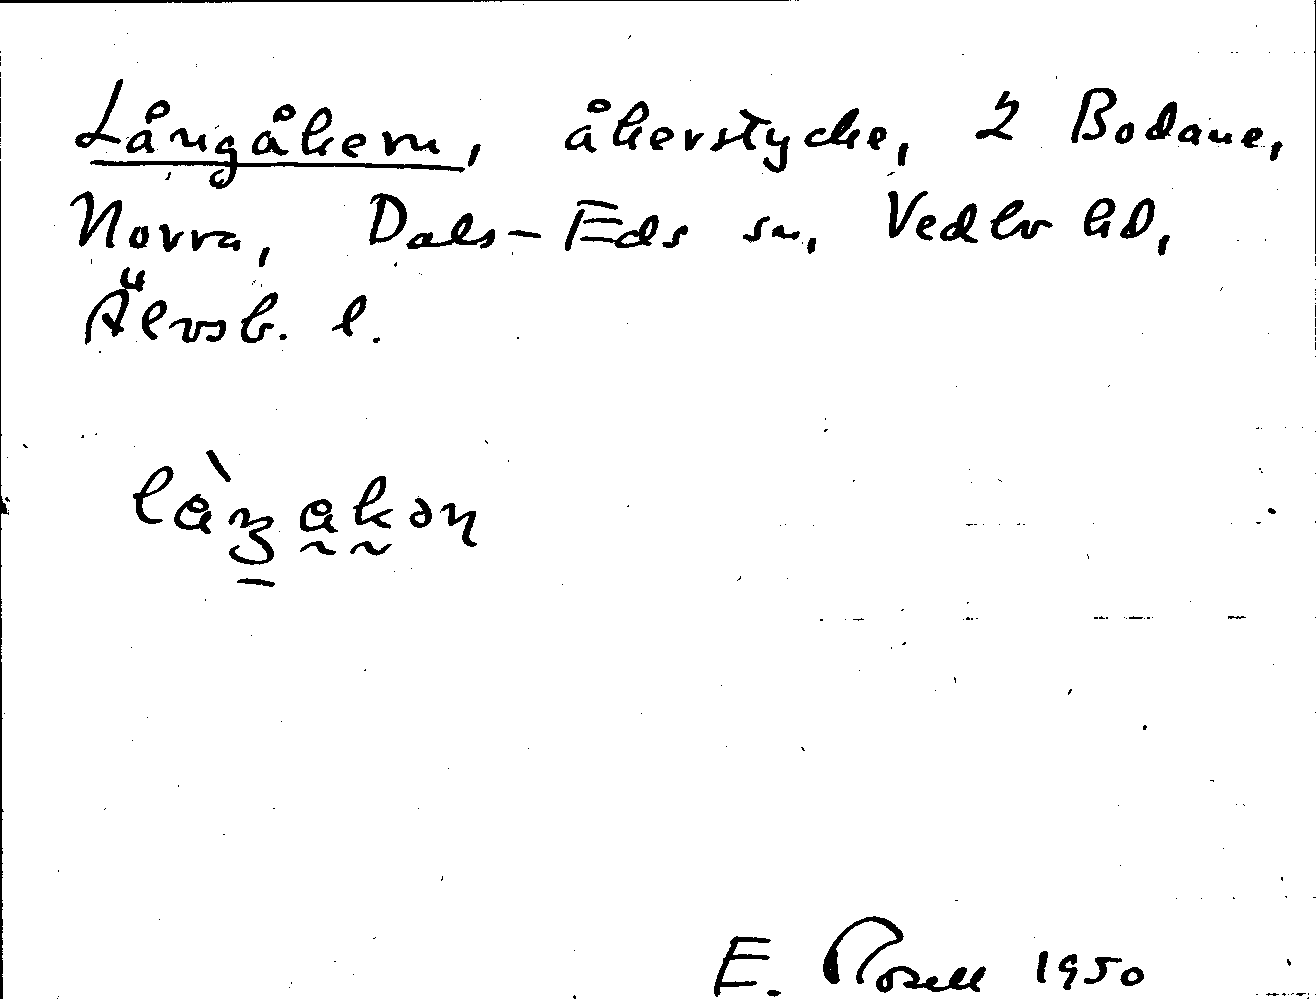 Långåkern, åkerstycke, 2 Bodane,
Norra, Dals-Eds sn, Vedbo hd,
Älvsb. l.
E. Rosell 1950